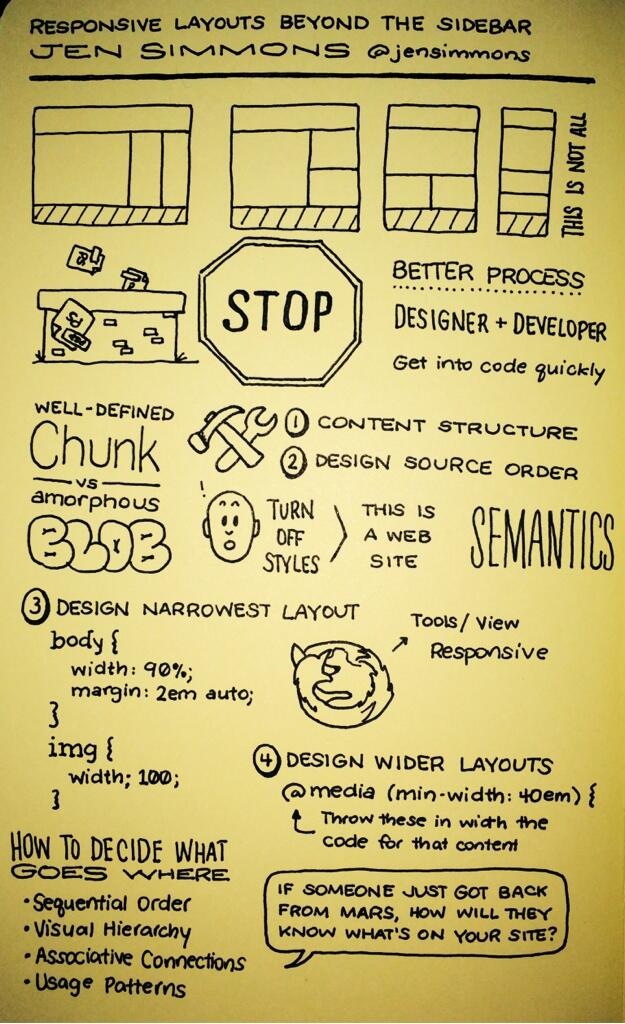 RESPONSIVE LAYOUTS BEYOND THE SIDEBAR
JEN SIMMONS @jensimmons
THIS IS NOT ALL
PS
STOP
BETTER PROCESS
DESIGNER + DEVELOPER
Get into code quickly
WELL-DEFINED
Chunk
VS
amorphous
BLOB
1 CONTENT STRUCTURE
2 DESIGN SOURCE ORDER
!
TURN
OFF
STYLES
THIS IS
A WEB
SITE
SEMANTICS
3 DESIGN NARROWEST LAYOUT
body {
width: 90%;
margin: 2em auto;
}
img {
width; 100;
}
Tools/View
Responsive
4 DESIGN WIDER LAYOUTS
@media (min-width: 40em) {
Throw these in width the
code for that content
HOW TO DECIDE WHAT
GOES WHERE
• Sequential Order
• Visual Hierarchy
• Associative Connections
• Usage Patterns
IF SOMEONE JUST GOT BACK
FROM MARS, HOW WILL THEY
KNOW WHAT'S ON YOUR SITE?